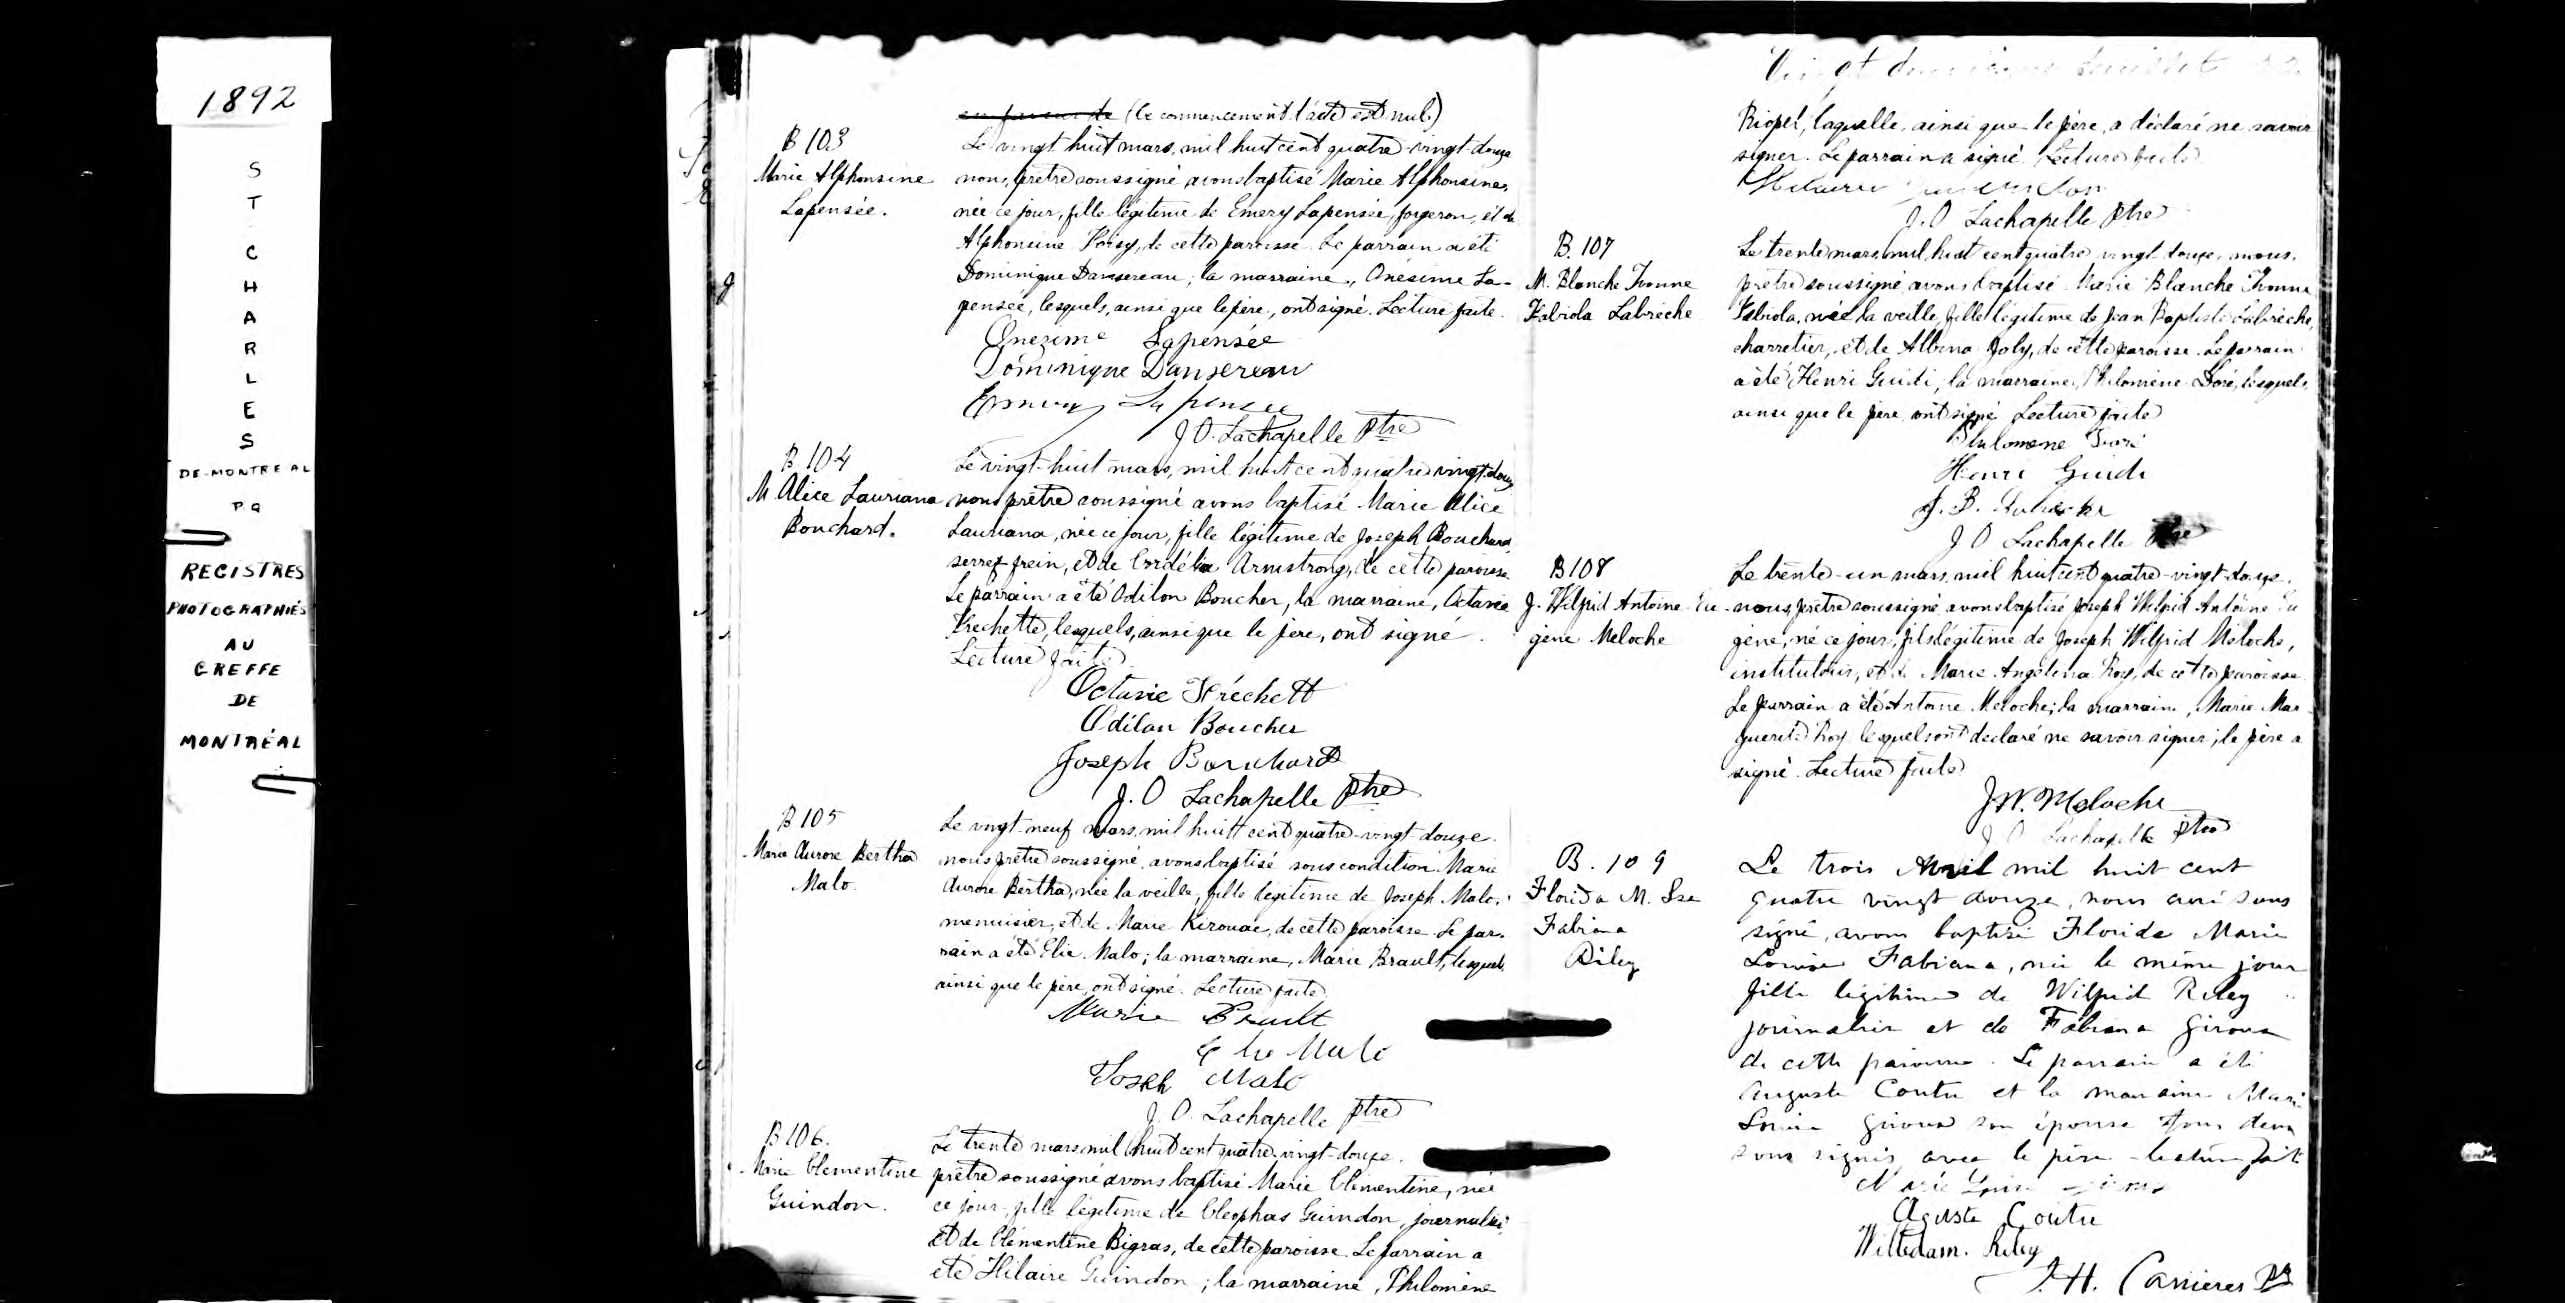 1892
S
T
C
H
A
R
L
E
S
DE-MONTREAL
P Q
REGISTRES
PHOTOGRAPHIÉS
AU
GREFFE
DE
MONTRÉAL
en faveur de (le commencement l'acte est nul.)
B 103
Marie Alphonsine
Lapensée.
Le vingt huit mars, mil huit cent quatre-vingt-douze
nous, prêtre soussigné avons baptisé Marie Alphonsine,
née ce jour, fille légitime de Emery Lapensée, forgeron, et de
Alphonsine, de cette paroisse. Le parrain a été
Dominique Dansereau; la marraine, Onésime La-
pensée, lesquels, ainsi que le père, ont signé. Lecture faite.
Onezime Lapensée
Dominique Dansereau
Emery Lapensée
J. O. Lachapelle Ptre
B 104
M. Alice Lauriana
Bouchard.
Le vingt-huit mars, mil huit cent quatre vingt-douze
nous prêtre soussigné avons baptisé Marie Alice
Lauriana, née ce jour, fille légitime de Joseph Bouchard,
serre-frein, et de Cordélia Armstrong, de cette paroisse.
Le parrain a été Odilon Boucher, la marraine, Octavie
Frechette, lesquels, ainsi que le père, ont signé.
Lecture faite.
Octavie Fréchett
Odilon Boucher
Joseph Bouchard
J. O Lachapelle Ptre
B 105
Marie Aurore Bertha
Malo.
Le vingt-neuf mars, mil huit cent quatre-vingt douze.
nous prêtre soussigné avons baptisé sous condition Marie
Aurore Bertha, née la veille, fille légitime de Joseph Malo,
menuisier, et de Marie Kirouac, de cette paroisse. Le par-
rain a été Elie Malo; la marraine, Marie Brault, lesquels
ainsi que le père, ont signé. Lecture faite
Marie Brault
Elie Malo
Joseh Malo
J. O. Lachapelle Ptre
B 106.
Marie Clementine
Guindon.
Le trente mars mil huit cent quatre-vingt-douze.
prêtre soussigné avons baptisé Marie Clementine, née
ce jour, fille légitime de Cléophas Guindon, journalier
et de Clémentine Bigras, de cette paroisse. Le parrain a
été Hilaire Guindon; la marraine, Philomène
Riopel, laquelle, ainsi que le père, a déclaré ne savoir
signer. Le parrain a signé. Lecture faite
Hilaire Guindon
J. O Lachapelle Ptre
B. 107
M. Blanche Ivonne
Fabiola Labrèche
Le trente mars, mil, huit cent quatre vingt-douze, nous,
prêtre soussigné, avons baptisé Marie Blanche Ivonne
Fabiola, née la veille, fille légitime de Jean Baptiste Labrèche,
charretier, et de Albina Joly, de cette paroisse. Le parrain
a été Henri Guidi, la marraine, Philomène Doré, lesquels,
ainsi que le père, ont signé. Lecture faite
Philomene Doré
Henri Guidi
J. B.
J O Lachapelle Ptre
B 108
J. Wilfrid Antoine Eu-
gène Meloche
Le trente-un mars, mil huit cent quatre-vingt-douze.
nous, prêtre soussigné avons baptisé Joseph Wilfrid Antoine Eu
gène, né ce jour, fils légitime de Joseph Wilfrid Meloche,
instituteur, et de Marie Angélina Roy, de cette paroisse.
Le parrain a été Antoine Meloche; la marraine, Marie Mar-
guerite Roy, lesquels ont declaré ne savoir signer; le père a
signé. Lecture faite
J. W. Meloche
J O Lachapelle Ptre
B. 109
Florida M. Lse
Fabiana
Riley
Le trois Avril mil huit cent
quatre vingt douze, nous curé sous
signé, avons baptisé Florida Marie
Louise Fabiana, née le même jour
fille légitime de Wilfrid Riley
journalier et de Fabiana Giroux
de cette paroisse. Le parrain a été
Auguste Coutu et la marraine Marie
Louise Giroux son épouse tous deux
sous signés avec le père - lecture faite
Marie Louise Giroux
Aguste Coutu
Riley
J. H. Carrières Ptr